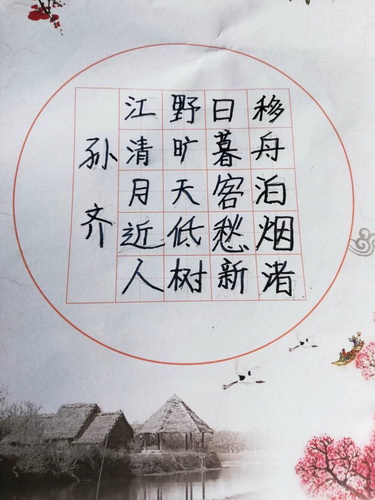 移舟泊烟渚
日暮客愁新
野旷天低树
江清月近人
孙齐